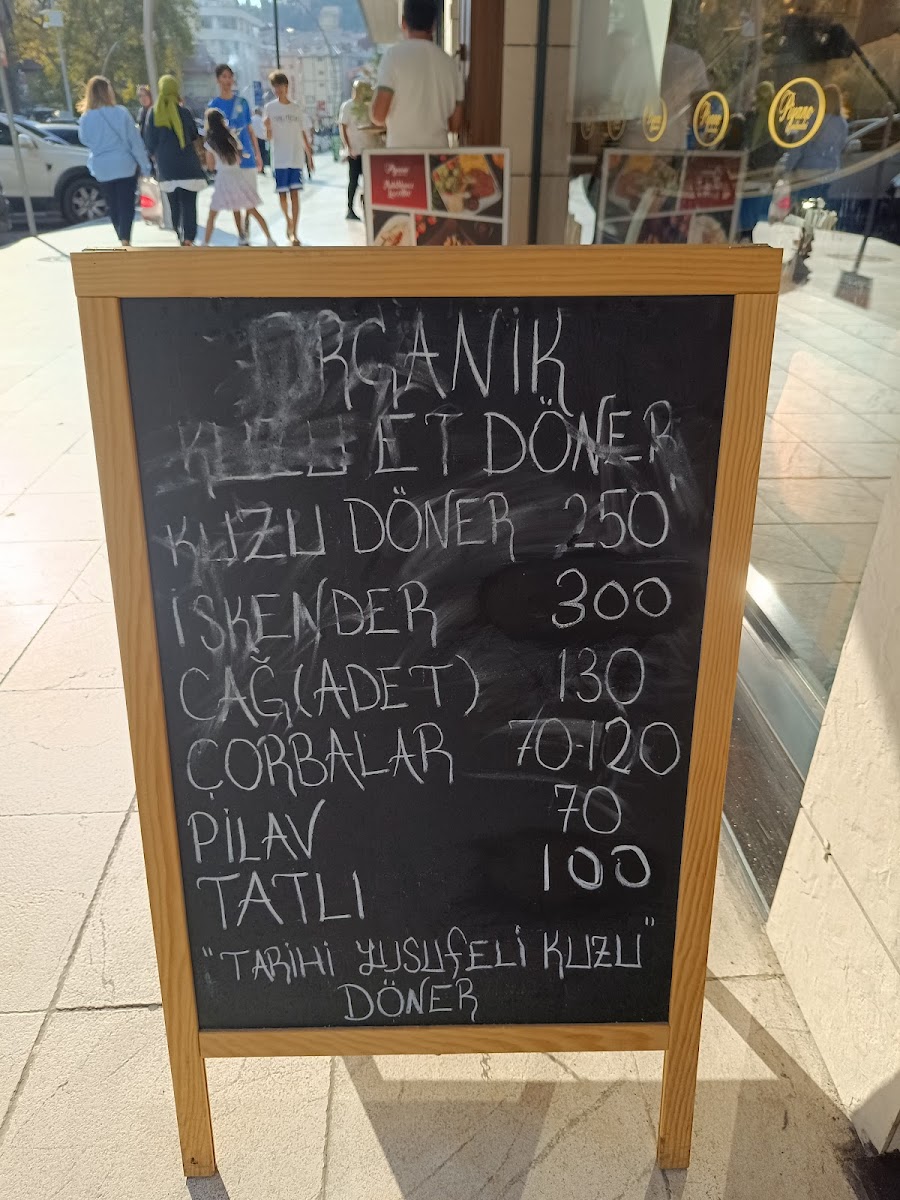 ORGANİK
ET DÖNER
KUZU DÖNER 250
İSKENDER 300
CAĞ(ADET) 130
ÇORBALAR 70-120
PİLAV 70
TATLI 100
"TARİHİ YUSUFELİ KUZU"
DÖNER